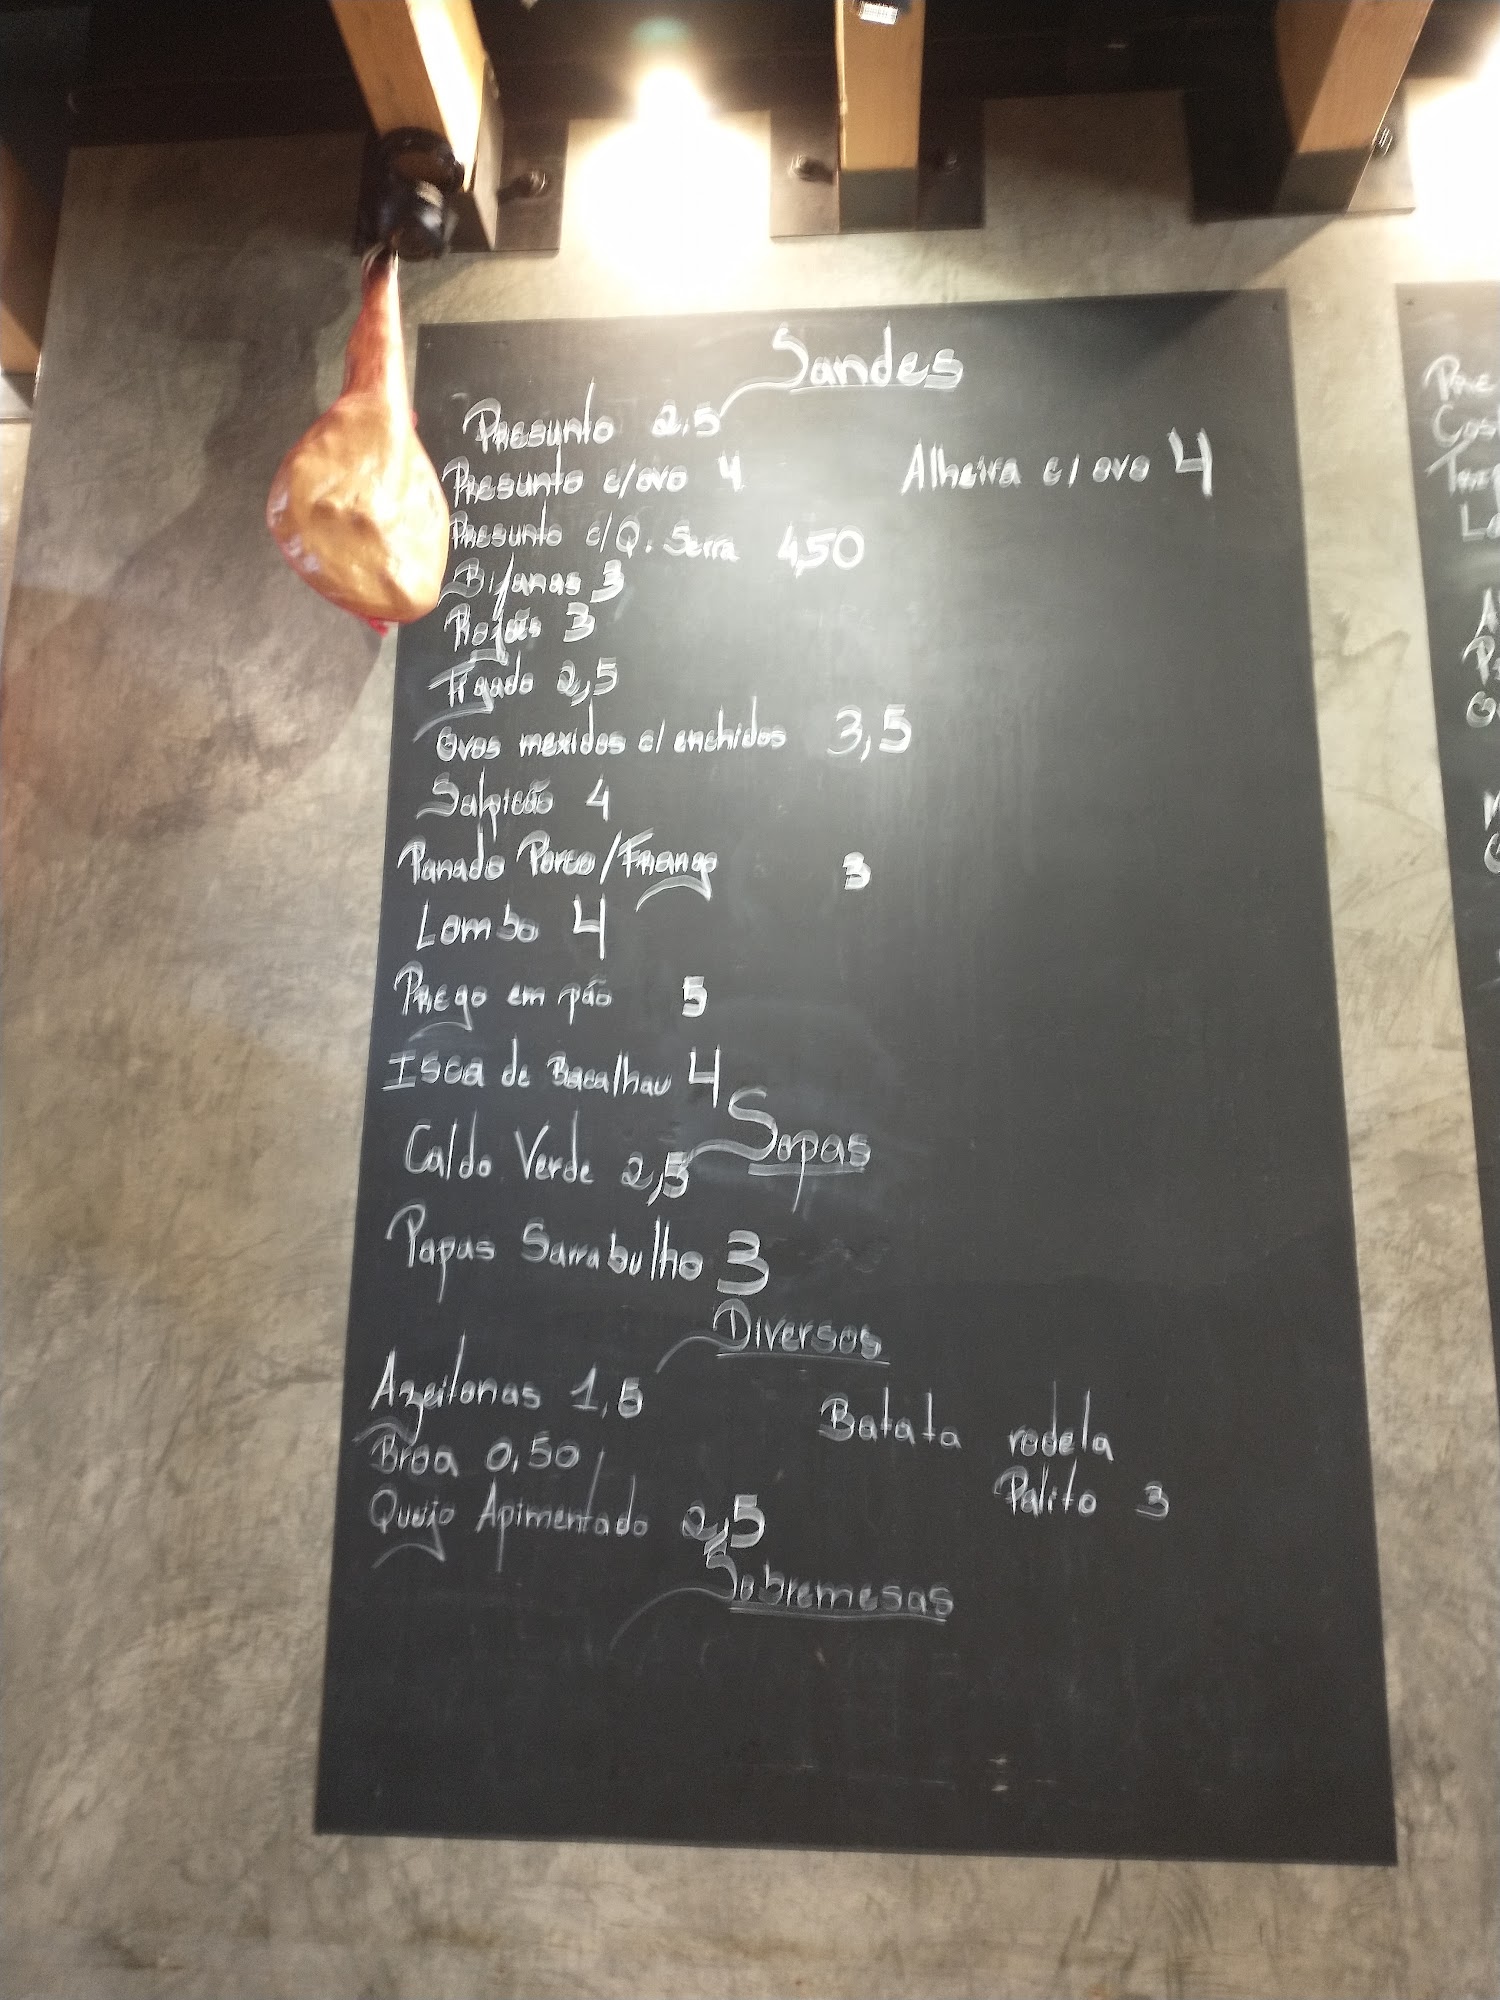 Sandes
Presunto 2,5
Presunto c/ovo 4
Alheira c/ ovo 4
Presunto c/Q. Serra 4,50
Bifanas 3
Rojões 3
Figado 2,5
Ovos mexidos c/ enchidos 3,5
Salpicão 4
Panado Porco/Frango 3
Lombo 4
Prego em pão 5
Isca de Bacalhau 4
Sopas
Caldo Verde 2,5
Papas Sarrabulho 3
Diversos
Azeitonas 1,5
Batata rodela
Broa 0,50
Palito 3
Queijo Apimentado 2,5
Sobremesas